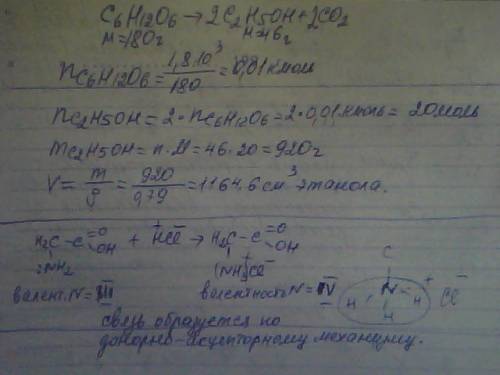 C₆H₁₂O₆ → 2C₂H₅OH + 2CO₂
M=180г M=46г
nC₆H₁₂O₆ = 1,8·10³/180 = 0,01 кмоль
nC₂H₅OH = 2·nC₆H₁₂O₆ = 2·0,01 кмоль = 20моль
mC₂H₅OH = n·M = 46·20 = 920г
V = m/ρ = 920/0,79 = 1164,6 см³ этанола.
H₂C-C=O OH + HCl → H₂C-C=O OH
:NH₂ (NH₃)⁺Cl⁻
валент. N = III валентность N = IV
C
H N H ⁺ Cl⁻
H
связь образуется по
донорно-акцепторному механизму.